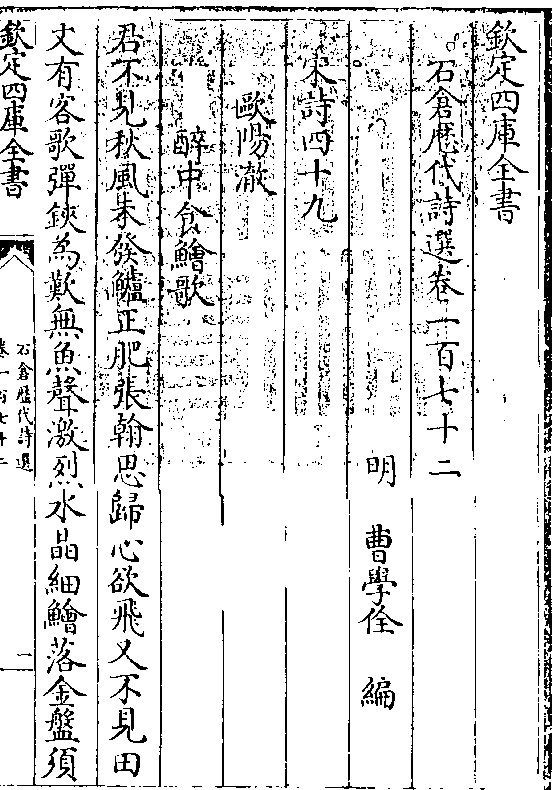 欽定四庫全書
石倉歷代詩選卷一百七十二
明　曹學佺　編
宋詩四十九
歐陽澈
醉中食鱠歌
君不見秋風未發鱸正肥張翰思歸心欲飛又不見田
文有客歌彈鋏為歎無魚聲激烈水晶細鱠落金盤須
欽定四庫全書
石倉歷代詩選
卷一百七十二
一